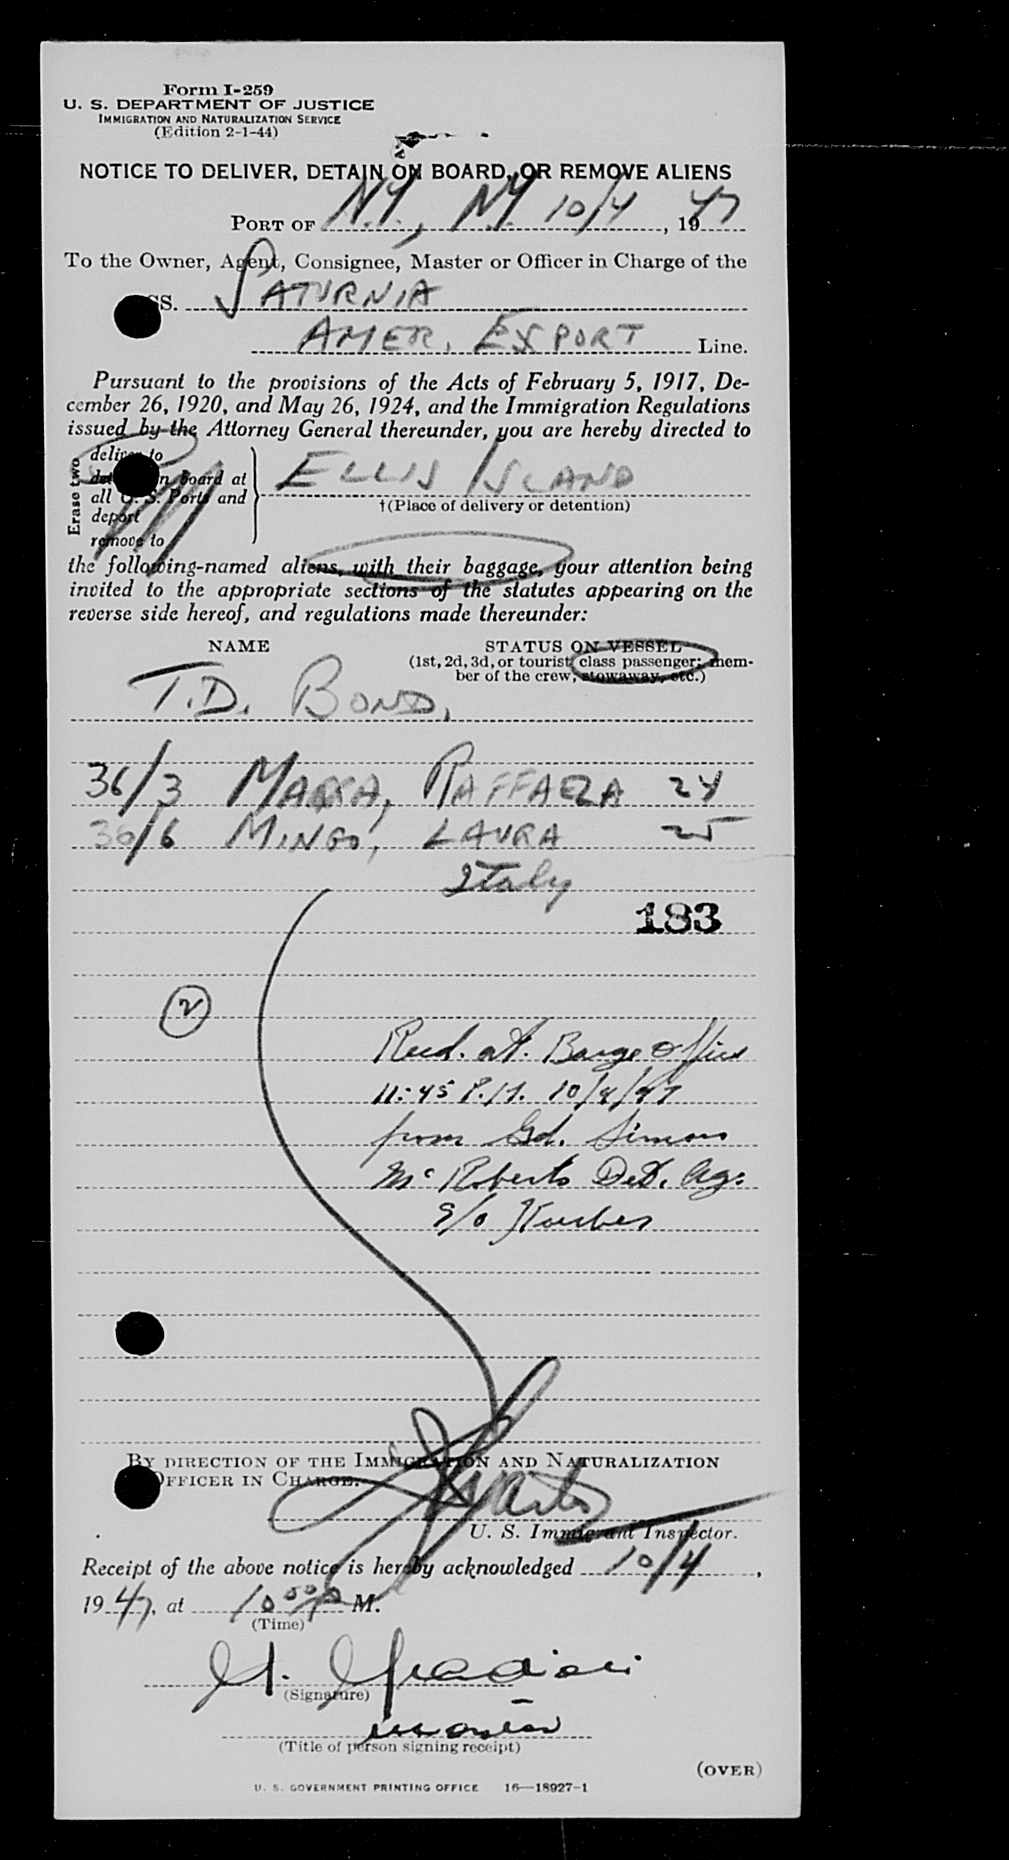 Form I-259
U. S. DEPARTMENT OF JUSTICE
IMMIGRATION AND NATURALIZATION SERVICE
(Edition 2-1-44)
NOTICE TO DELIVER, DETAIN ON BOARD, OR REMOVE ALIENS
PORT OF N.Y., N.Y. 10/4, 1947
To the Owner, Agent, Consignee, Master or Officer in Charge of the
SS. SATURNIA
AMER. EXPORT Line.
Pursuant to the provisions of the Acts of February 5, 1917, De-
cember 26, 1920, and May 26, 1924, and the Immigration Regulations
issued by the Attorney General thereunder, you are hereby directed to
Erase two
deliver to
on board at
all U. S. Ports and
deport
remove to
ELLIS ISLAND
†(Place of delivery or detention)
the following-named aliens, with their baggage, your attention being
invited to the appropriate sections of the statutes appearing on the
reverse side hereof, and regulations made thereunder:
NAME STATUS ON VESSEL
(1st, 2d, 3d, or tourist class passenger; mem-
ber of the crew, stowaway, etc.)
T.D. BOND,
36/3 RAFFAELA 24
36/6 MINGO, LAURA 25
Italy
183
2
Recd. at. Barge Office
11:45 P.M. 10/4/47
from Gd. Simons
McRoberts Det. Ag.
S/O
BY DIRECTION OF THE IMMIGRATION AND NATURALIZATION
OFFICER IN CHARGE.
U. S. Immigrant Inspector.
Receipt of the above notice is hereby acknowledged 10/4,
1947, at 10 00 P M.
(Time)
(Signature)
master
(Title of person signing receipt)
(OVER)
U. S. GOVERNMENT PRINTING OFFICE 16—18927-1